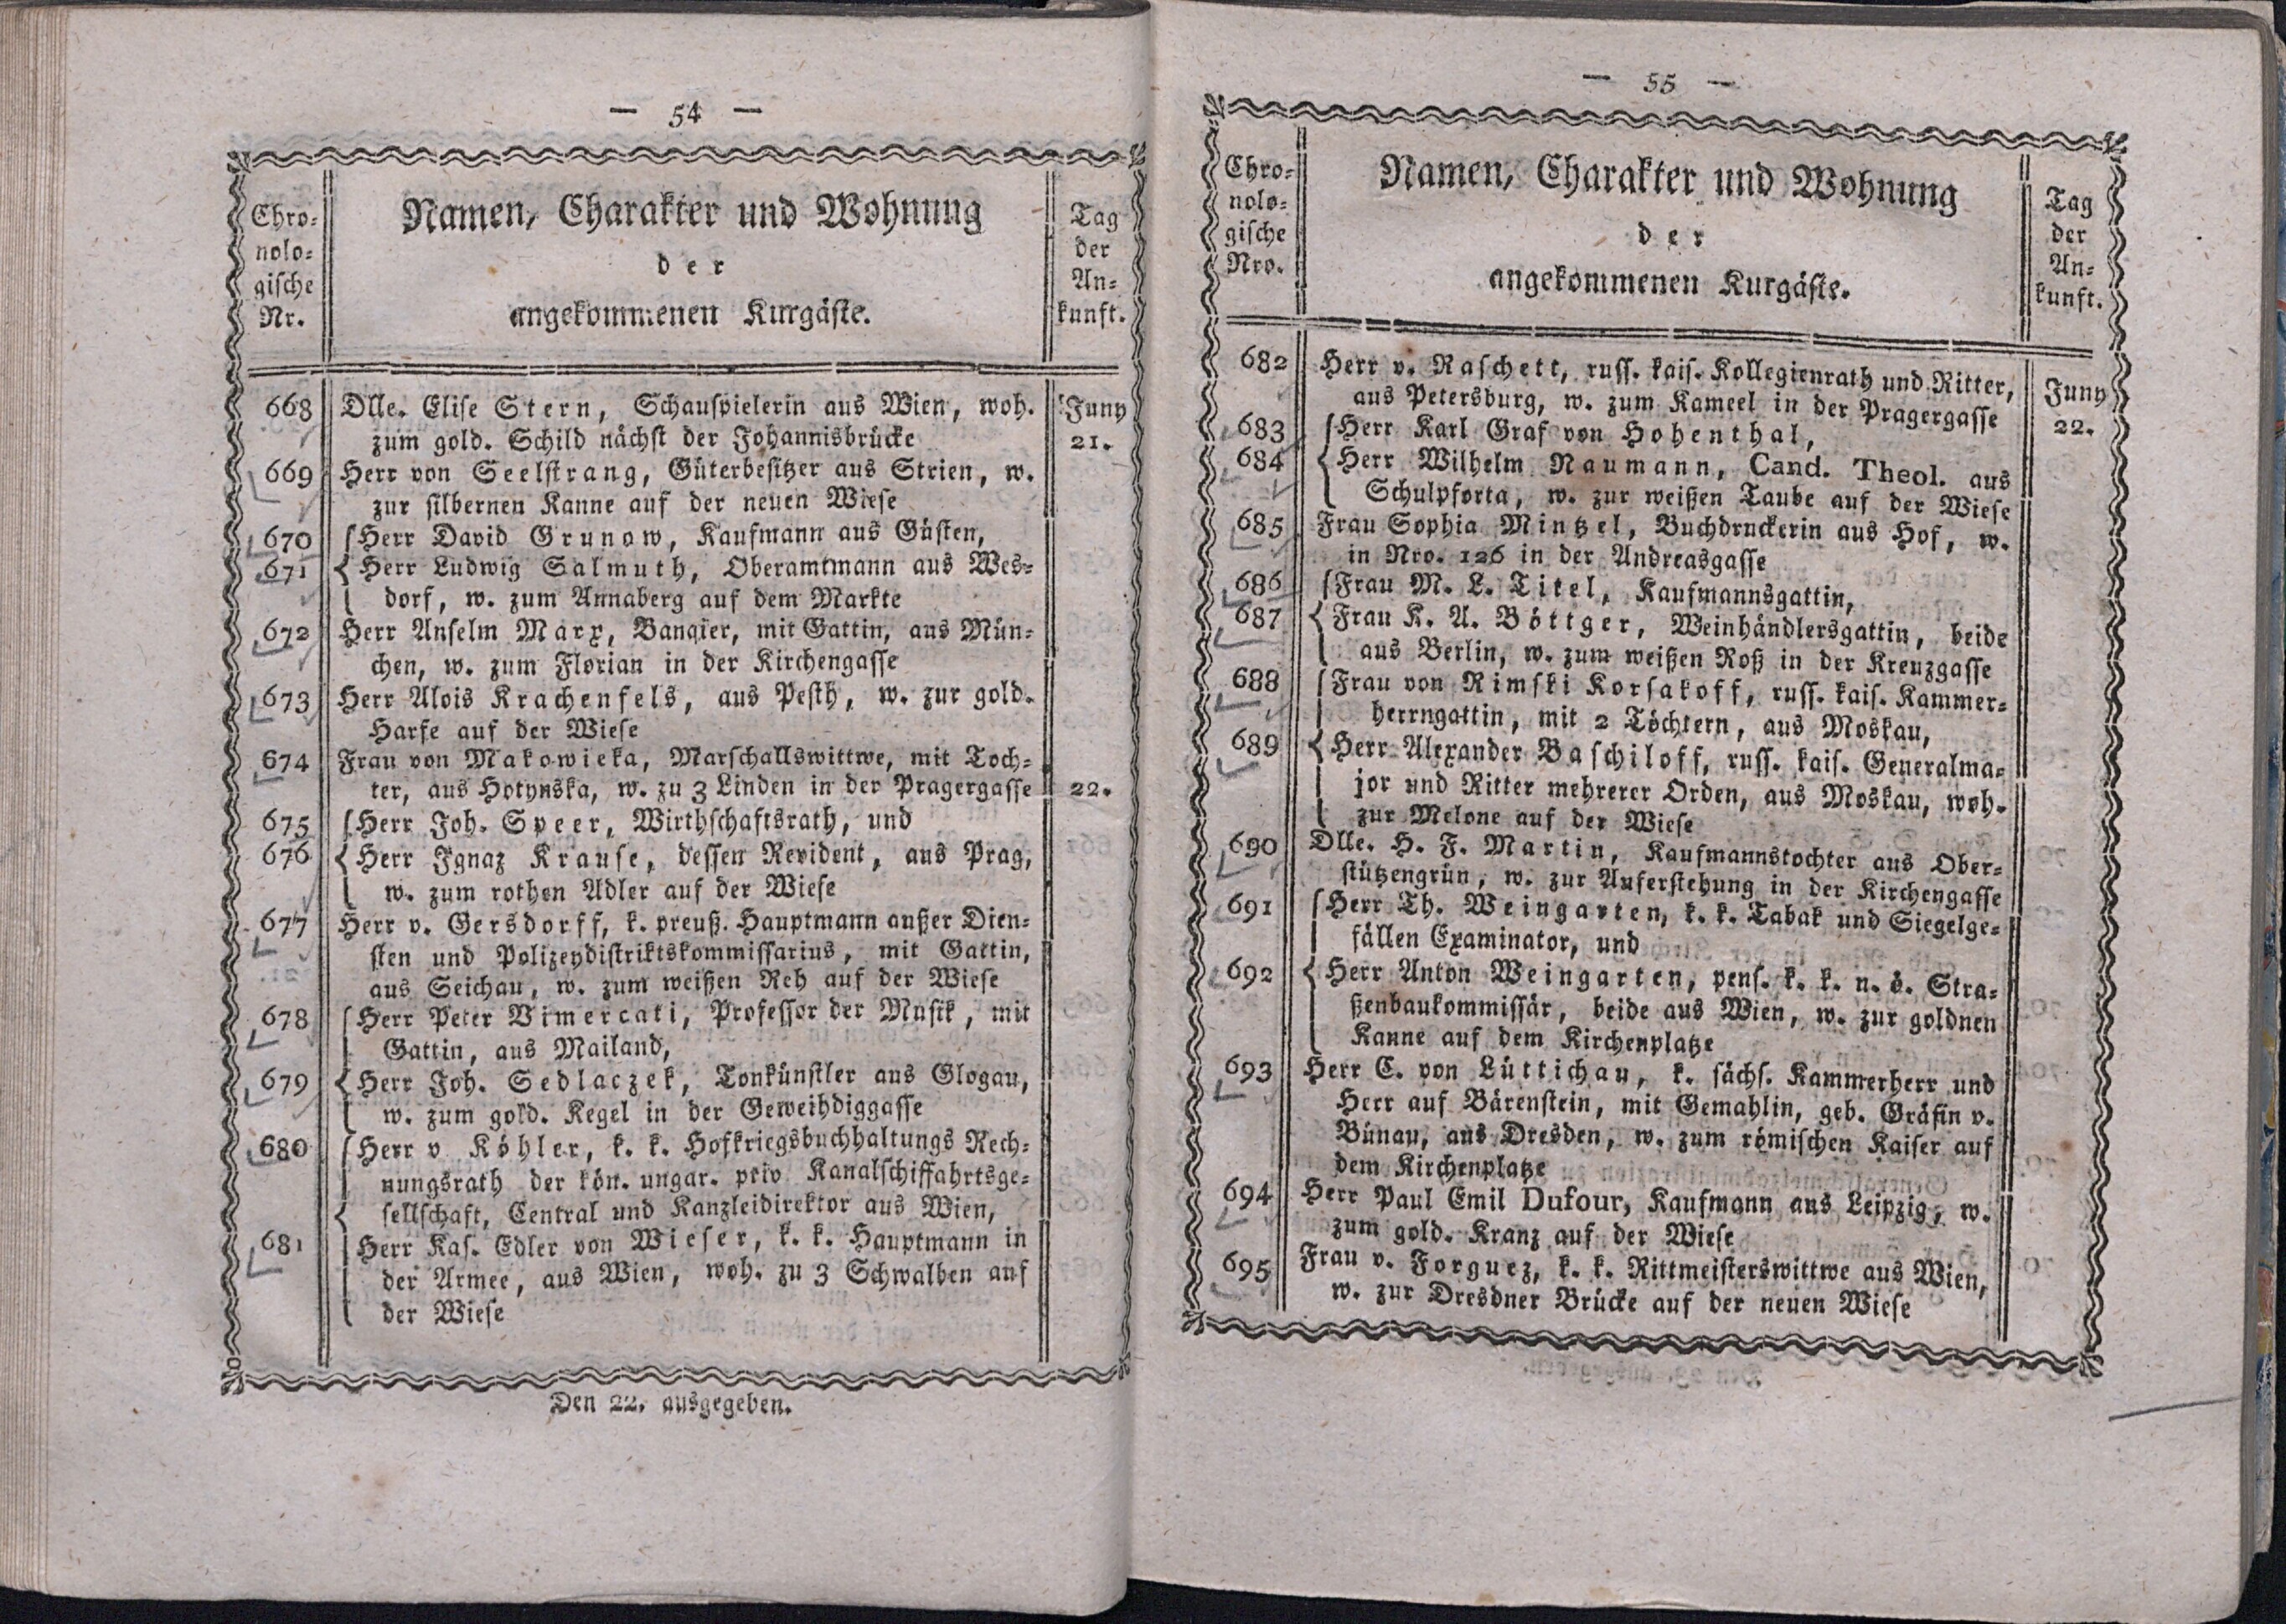 — 54 —
Chro-
nolo-
gische
Nr.
Namen, Charakter und Wohnung
der
angekommenen Kurgäste.
Tag
der
An-
kunft.
668 Dlle. Elise Stern, Schauspielerin aus Wien, woh. Juny
zum gold. Schild nächst der Johannisbrücke 21.
669 Herr von Seelstrang, Güterbesitzer aus Strien, w.
zur silbernen Kanne auf der neuen Wiese
670 Herr David Grunow, Kaufmann aus Güsten,
671 Herr Ludwig Salmuth, Oberamtmann aus Wes-
dorf, w. zum Annaberg auf dem Markte
672 Herr Anselm Marx, Banqier, mit Gattin, aus Mün-
chen, w. zum Florian in der Kirchengasse
673 Herr Alois Krachenfels, aus Pesth, w. zur gold.
Harfe auf der Wiese
674 Frau von Makowieka, Marschallswittwe, mit Toch-
ter, aus Hotynska, w. zu 3 Linden in der Pragergasse 22.
675 Herr Joh. Speer, Wirthschaftsrath, und
676 Herr Ignaz Krause, dessen Revident, aus Prag,
w. zum rothen Adler auf der Wiese
677 Herr v. Gersdorff, k. preuß. Hauptmann außer Dien-
sten und Polizeydistriktskommissarius, mit Gattin,
aus Seichau, w. zum weißen Reh auf der Wiese
678 Herr Peter Vimercati, Professor der Musik, mit
Gattin, aus Mailand,
679 Herr Joh. Sedlaczek, Tonkünstler aus Glogau,
w. zum gold. Kegel in der Geweihdiggasse
680 Herr v Köhler, k. k. Hofkriegsbuchhaltungs Rech-
nungsrath der kön. ungar. priv Kanalschiffahrtsge-
sellschaft, Central und Kanzleidirektor aus Wien,
681 Herr Kas. Edler von Wieser, k. k. Hauptmann in
der Armee, aus Wien, woh. zu 3 Schwalben auf
der Wiese
Den 22. ausgegeben.
— 55 —
Chro-
nolo-
gische
Nro.
Namen, Charakter und Wohnung
der
angekommenen Kurgäste.
Tag
der
An-
kunft.
682 Herr v. Raschett, russ. kais. Kollegienrath und Ritter, Juny
aus Petersburg, w. zum Kameel in der Pragergasse 22.
683 Herr Karl Graf von Hohenthal,
684 Herr Wilhelm Naumann, Cand. Theol. aus
Schulpforta, w. zur weißen Taube auf der Wiese
685 Frau Sophia Mintzel, Buchdruckerin aus Hof, w.
in Nro. 126 in der Andreasgasse
686 Frau M. L. Titel, Kaufmannsgattin,
687 Frau K. A. Böttger, Weinhändlersgattin, beide
aus Berlin, w. zum weißen Roß in der Kreuzgasse
688 Frau von Rimski Korsakoff, russ. kais. Kammer-
herrngattin, mit 2 Töchtern, aus Moskau,
689 Herr Alexander Baschiloff, russ. kais. Generalma-
jor und Ritter mehrerer Orden, aus Moskau, woh.
zur Melone auf der Wiese
690 Dlle. H. F. Martin, Kaufmannstochter aus Ober-
stützengrün, w. zur Auferstehung in der Kirchengasse
691 Herr Th. Weingarten, k. k. Tabak und Siegelge-
fällen Examinator, und
692 Herr Anton Weingarten, pens. k. k. n. ö. Stra-
ßenbaukommissär, beide aus Wien, w. zur goldnen
Kanne auf dem Kirchenplatze
693 Herr C. von Lüttichau, k. sächs. Kammerherr und
Herr auf Bärenstein, mit Gemahlin, geb. Gräfin v.
Bünau, aus Dresden, w. zum römischen Kaiser auf
dem Kirchenplatze
694 Herr Paul Emil Dufour, Kaufmann aus Leipzig, w.
zum gold. Kranz auf der Wiese
695 Frau v. Forguez, k. k. Rittmeisterswittwe aus Wien,
w. zur Dresdner Brücke auf der neuen Wiese